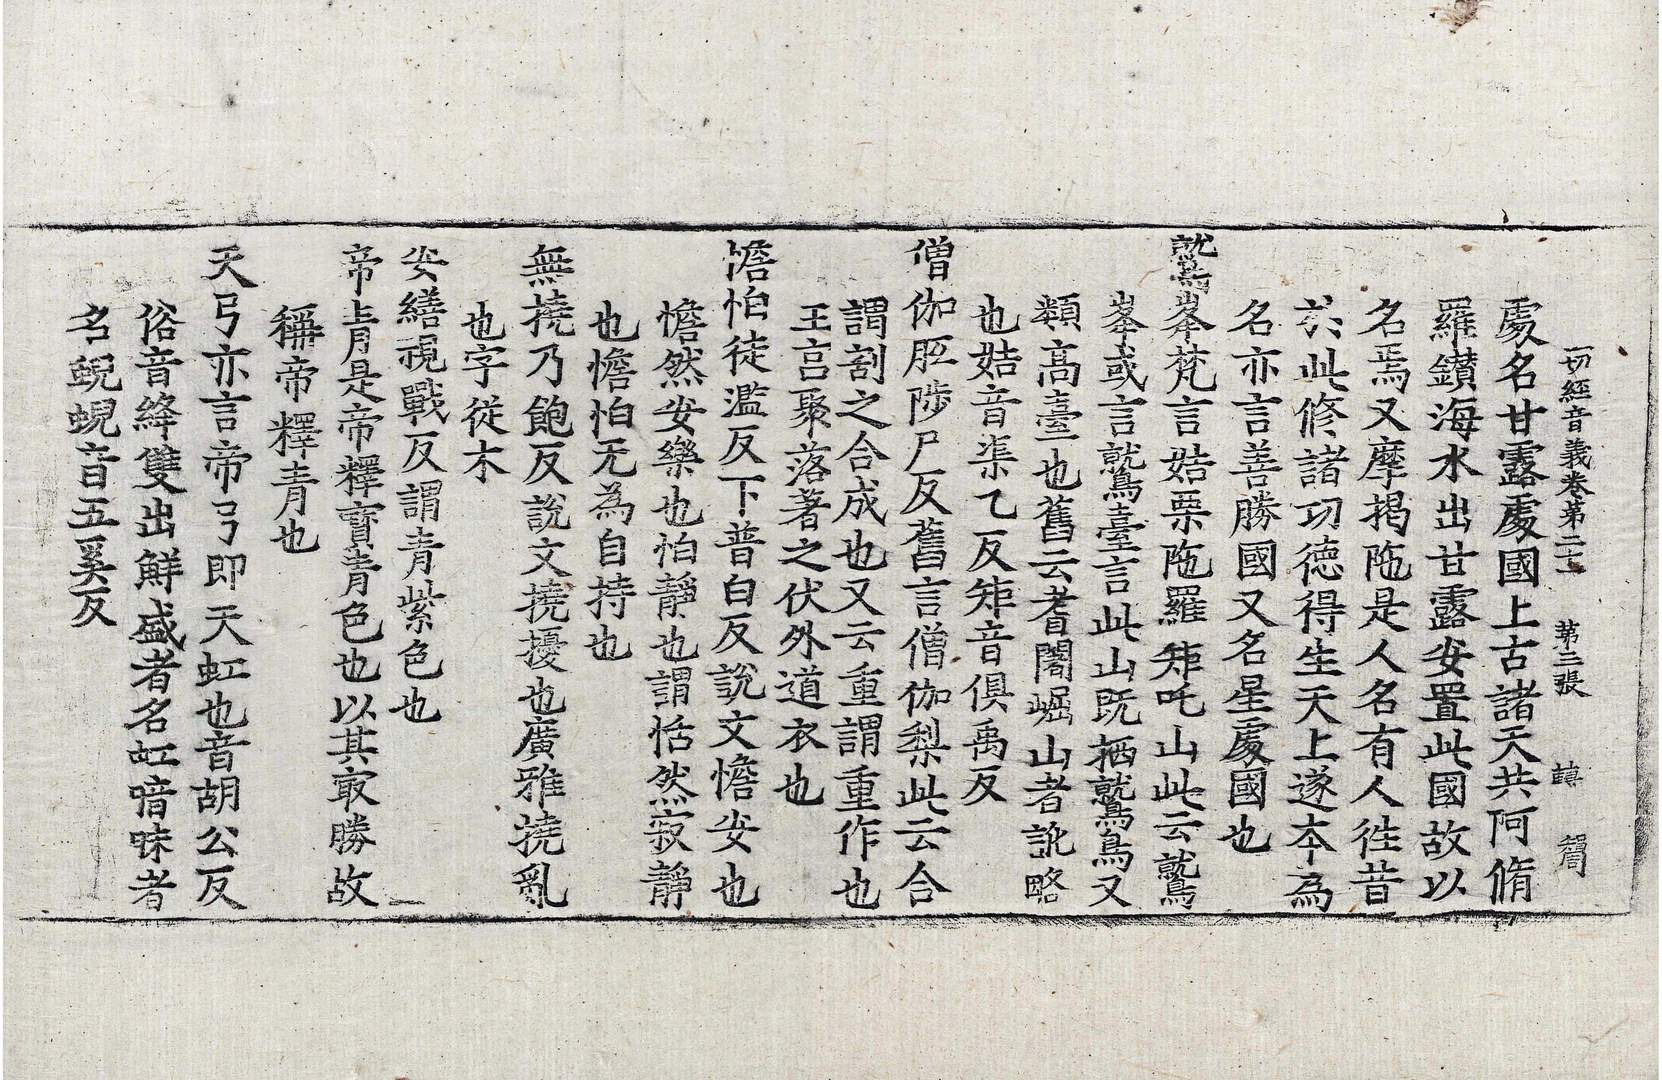 一切經音義卷第二十一 第三張
處名甘露處國上古諸天共阿脩
羅鑚海水出甘露安置此國故以
名焉又摩掲陁是人名有人徃昔
於此修諸功徳得生天上遂夲為
名亦言善勝國又名星處國也
鷲峯梵言姞栗陁羅矩吒山此云鷲
峯或言鷲臺言此山既栖鷲鳥又
類高臺也舊云耆闍崛山者訛略
也姞音渠乙反矩音俱禹反
僧伽胝陟尸反舊言僧伽梨此云合
謂割之合成也又云重謂重作也
王宫聚落著之伏外道衣也
憺怕徒濫反下普白反說文憺安也
憺然安樂也怕静也謂恬然寂静
也憺怕无為自持也
無撓乃飽反說文撓擾也廣雅撓亂
也字從木
安繕視戰反謂青紫色也
帝青是帝釋寳青色也以其㝡勝故
稱帝釋青也
天弓亦言帝弓即天虹也音胡公反
俗音絳雙出鮮盛者名虹暗昧者
名蜺蜺音五奚反